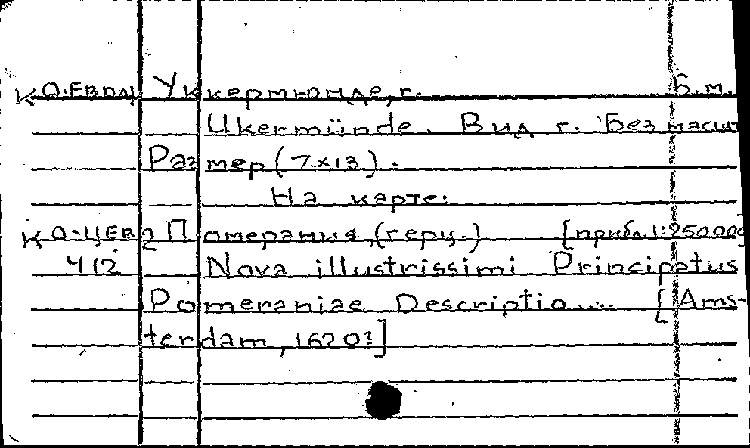 К О-Евр Уккермюнде, г. Б.м.
Ukermünde. Вид г. Без масшт
Размер (7x13).
На карте:
К О-Ц Ев 2 Померания, (герц.) [прибл. 1:250000
Ч 12 Nova illustrissimi Principatus
Pomeraniae Descriptio .... [Ams-
terdam, 1620?]